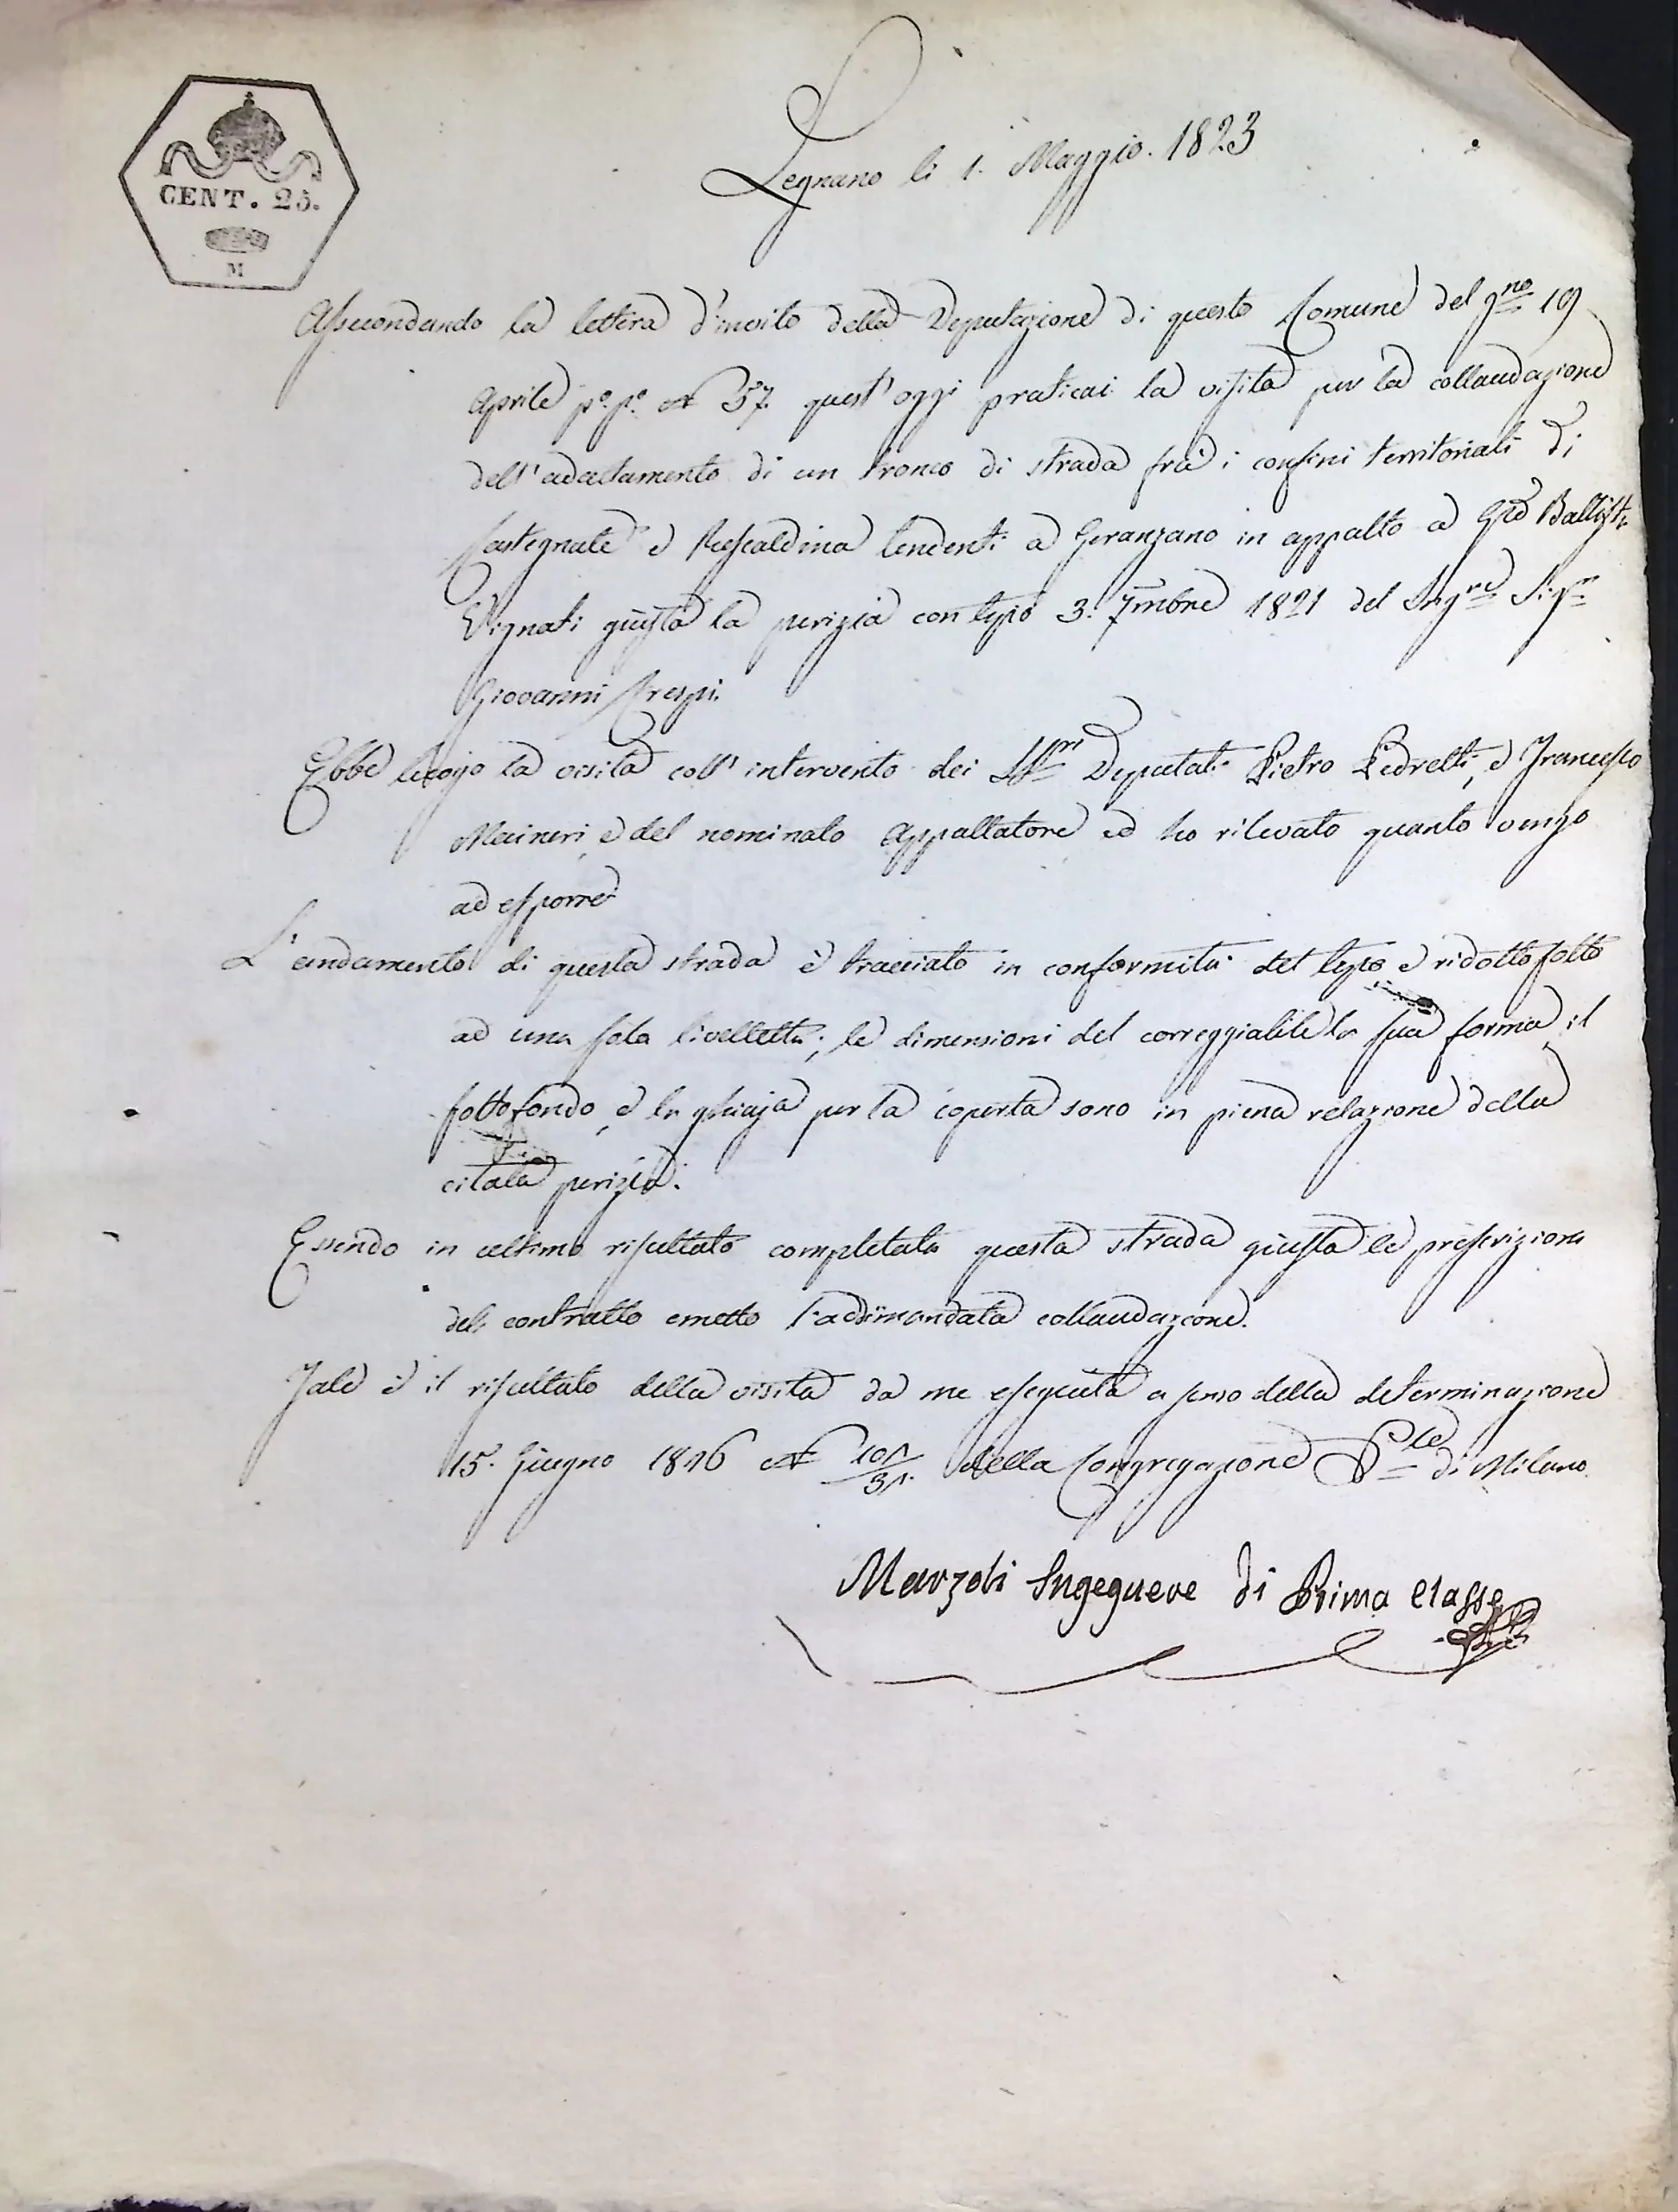 CENT. 25.
M
Legnano li 1. Maggio. 1823
Assecondando la lettera d'invito della Deputazione di questo Comune del g.no 19
Aprile p.o p.o N 37 quest'oggi praticai la visita per la collaudazione
dell'adattamento di un tronco di strada frà i confini territoriali di
Castegnate e Rescaldina tendenti a Geranzano in appalto a Gio Battista
Vignati giusta la perizia con tipo 3. 7mbre 1821 del Ing.re Sig.r
Giovanni Crespi.
Ebbe luogo la visita coll'intervento dei SS.ri Deputati Pietro Pedretti, e Francesco
Maineri, e del nominato Appaltatore ed ho rilevato quanto vengo
ad esporre
L'andamento di questa strada è tracciato in conformità del tipo e ridotto sotto
ad una sola livelletta; le dimensioni del carreggiabile la sua forma, il
sottofondo, e la ghiaja per la coperta sono in piena relazione della
citata perizia.
Essendo in ultimo risultato completata questa strada giusta le prescrizioni
del contratto emetto l'addimandata collaudazione.
Tale è il risultato della visita da me eseguita a senso della determinazione
15. Giugno 1816 N della Congregazione P.le di Milano.
Marzoli Ingegnere di Prima Classe